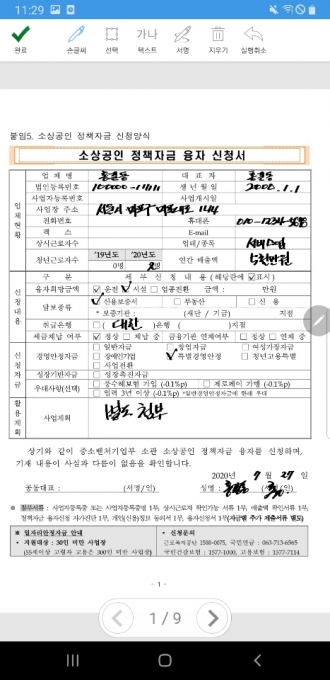 11:29
완료
손글씨
선택
가나
텍스트
서명
지우기
실행취소
붙임5. 소상공인 정책자금 신청양식
소상공인 정책자금 융자 신청서
업체현황
업 체 명 홍길동 대 표 자 홍길동
법인등록번호 생 년 월 일 2000.1.1
사업자등록번호 사업개시일
사업장 주소 휴대폰
전화번호 010-1234-
팩 스 E-mail
상시근로자수 업태/종목 서비스업
청년근로자수 '19년도 '20년도 연간 매출액 5천만원
0명 2명
신청내용
구 분 세 부 신 청 내 용 (해당란에 ☑표시)
융자희망금액 운전 시설 금액 : 만원
담보종류 신용보증서 부동산 신 용
* 보증기관 : (재단 / 기금) 지점
취급은행 ( )은행 ( )지점
세금체납 여부 정상 체납 중 금융기관 연체여부 정상 연체 중
신청자금
경영안정자금 일반자금 창업자금 여성가장자금
장애인기업 특별경영안정 청년고용특별
사업전환
성장기반자금 성장촉진자금
우대사항(선택) 풍수해보험 가입 (-0.1%p) 제로페이 가맹 (-0.1%p)
업력 3년 이상 (-0.1%p) *일반경영안정자금에 한해 우대
활용계획
사업계획 별도 첨부
상기와 같이 중소벤처기업부 소관 소상공인 정책자금 융자를 신청하며,
기재 내용이 사실과 다름이 없음을 확인합니다.
2020년 7 월 27 일
공동대표 : (서명/인) 성명 : 홍길동 (서명/인)
※ 첨부서류 : 사업자등록증 또는 사업자등록증명 1부, 상시근로자 확인가능 서류 1부, 매출액 확인서류 1부,
정책자금 융자신청 자가진단 1부, 개인(신용)정보 동의서 1부, 융자신청서 1부(자금별 추가 제출서류 별도)
※ 일자리안정자금 안내
• 지원대상 : 30인 미만 사업장
(55세이상 고령자 고용은 300인 미만 사업장)
• 신청문의
근로복지공단 1588-0075, 국민연금 : 063-713-6565
국민건강보험 : 1577-1000, 고용보험 : 1577-7114
- 1 -
1 / 9